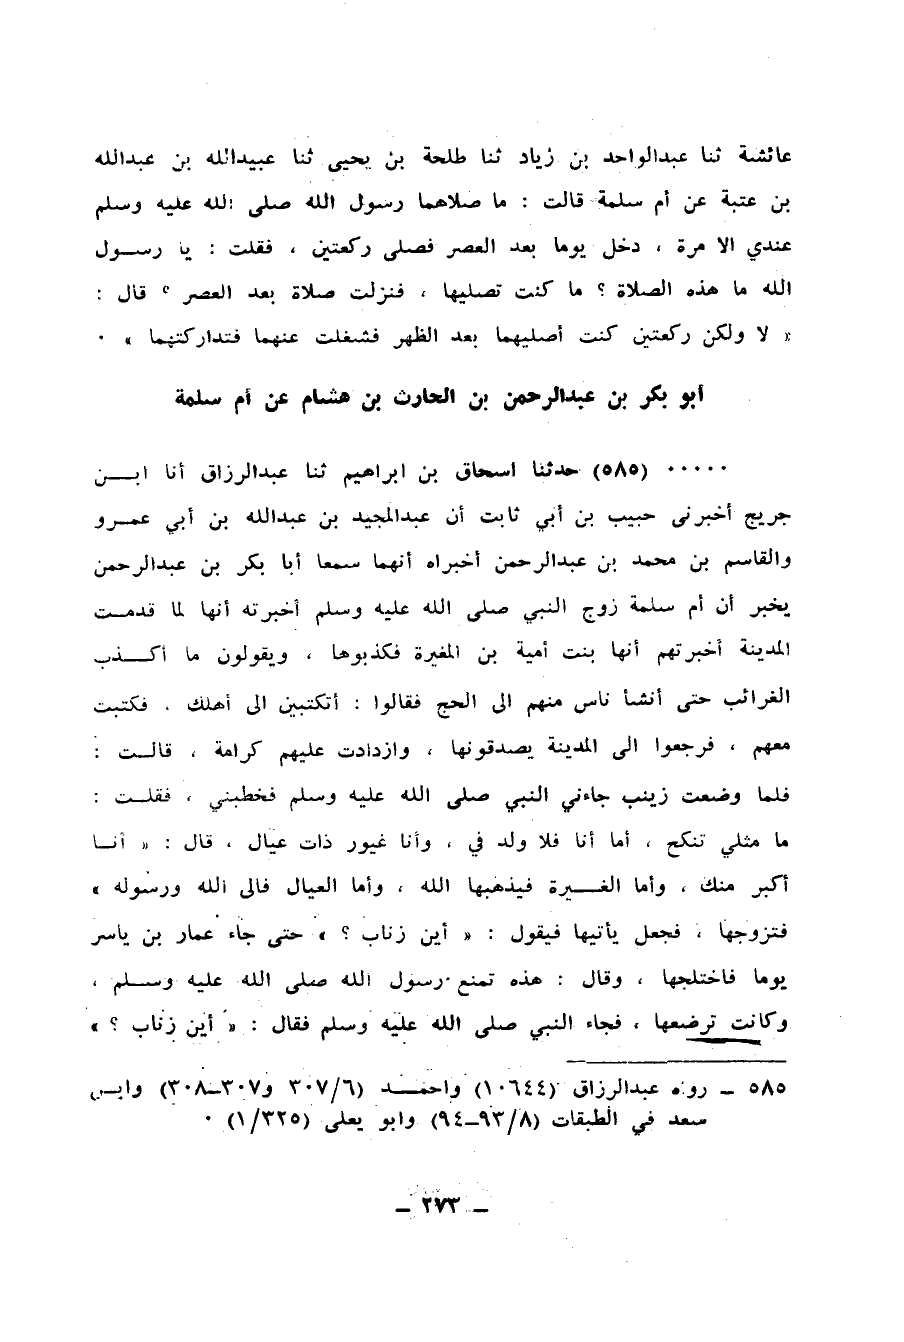 عائشة ثنا عبدالواحد بن زياد ثنا طلحة بن يحيى ثنا عبيدالله بن عبدالله
بن عتبة عن أم سلمة قالت : ما صلاهما رسول الله صلى الله عليه وسلم
عندي الا مرة ، دخل يوما بعد العصر فصلى ركعتين ، فقلت : يا رسول
الله ما هذه الصلاة ؟ ما كنت تصليها ، فنزلت صلاة بعد العصر ؟ قال :
« لا ولكن ركعتين كنت أصليهما بعد الظهر فشغلت عنهما فتداركتهما » ٠
أبو بكر بن عبدالرحمن بن الحارث بن هشام عن أم سلمة
٠٠٠٠٠ (٥٨٥) حدثنا اسحاق بن ابراهيم ثنا عبدالرزاق أنا ابن
جريج أخبرنى حبيب بن أبي ثابت أن عبدالمجيد بن عبدالله بن أبي عمرو
والقاسم بن محمد بن عبدالرحمن أخبراه أنهما سمعا أبا بكر بن عبدالرحمن
يخبر أن أم سلمة زوج النبي صلى الله عليه وسلم أخبرته أنها لما قدمت
المدينة أخبرتهم أنها بنت أمية بن المغيرة فكذبوها ، ويقولون ما أكذب
الغرائب حتى أنشأ ناس منهم الى الحج فقالوا : أتكتبين الى أهلك ، فكتبت
معهم ، فرجعوا الى المدينة يصدقونها ، وازدادت عليهم كرامة ، قالت :
فلما وضعت زينب جاءني النبي صلى الله عليه وسلم فخطبني ، فقلت :
ما مثلي تنكح ، أما أنا فلا ولد في ، وأنا غيور ذات عيال ، قال : « أنا
أكبر منك ، وأما الغيرة فيذهبها الله ، وأما العيال فالى الله ورسوله »
فتزوجها ، فجعل يأتيها فيقول : « أين زناب ؟ » حتى جاء عمار بن ياسر
يوما فاختلجها ، وقال : هذه تمنع رسول الله صلى الله عليه وسلم ،
وكانت ترضعها ، فجاء النبي صلى الله عليه وسلم فقال : « أين زناب ؟ »
٥٨٥ ــ رواه عبدالرزاق (١٠٦٤٤) واحمد (٣٠٧/٦ و٣٠٧ــ٣٠٨) وابن
سعد في الطبقات (٩٣/٨ــ٩٤) وابو يعلى (١/٣٢٥) ٠
ــ ٢٧٣ ــ